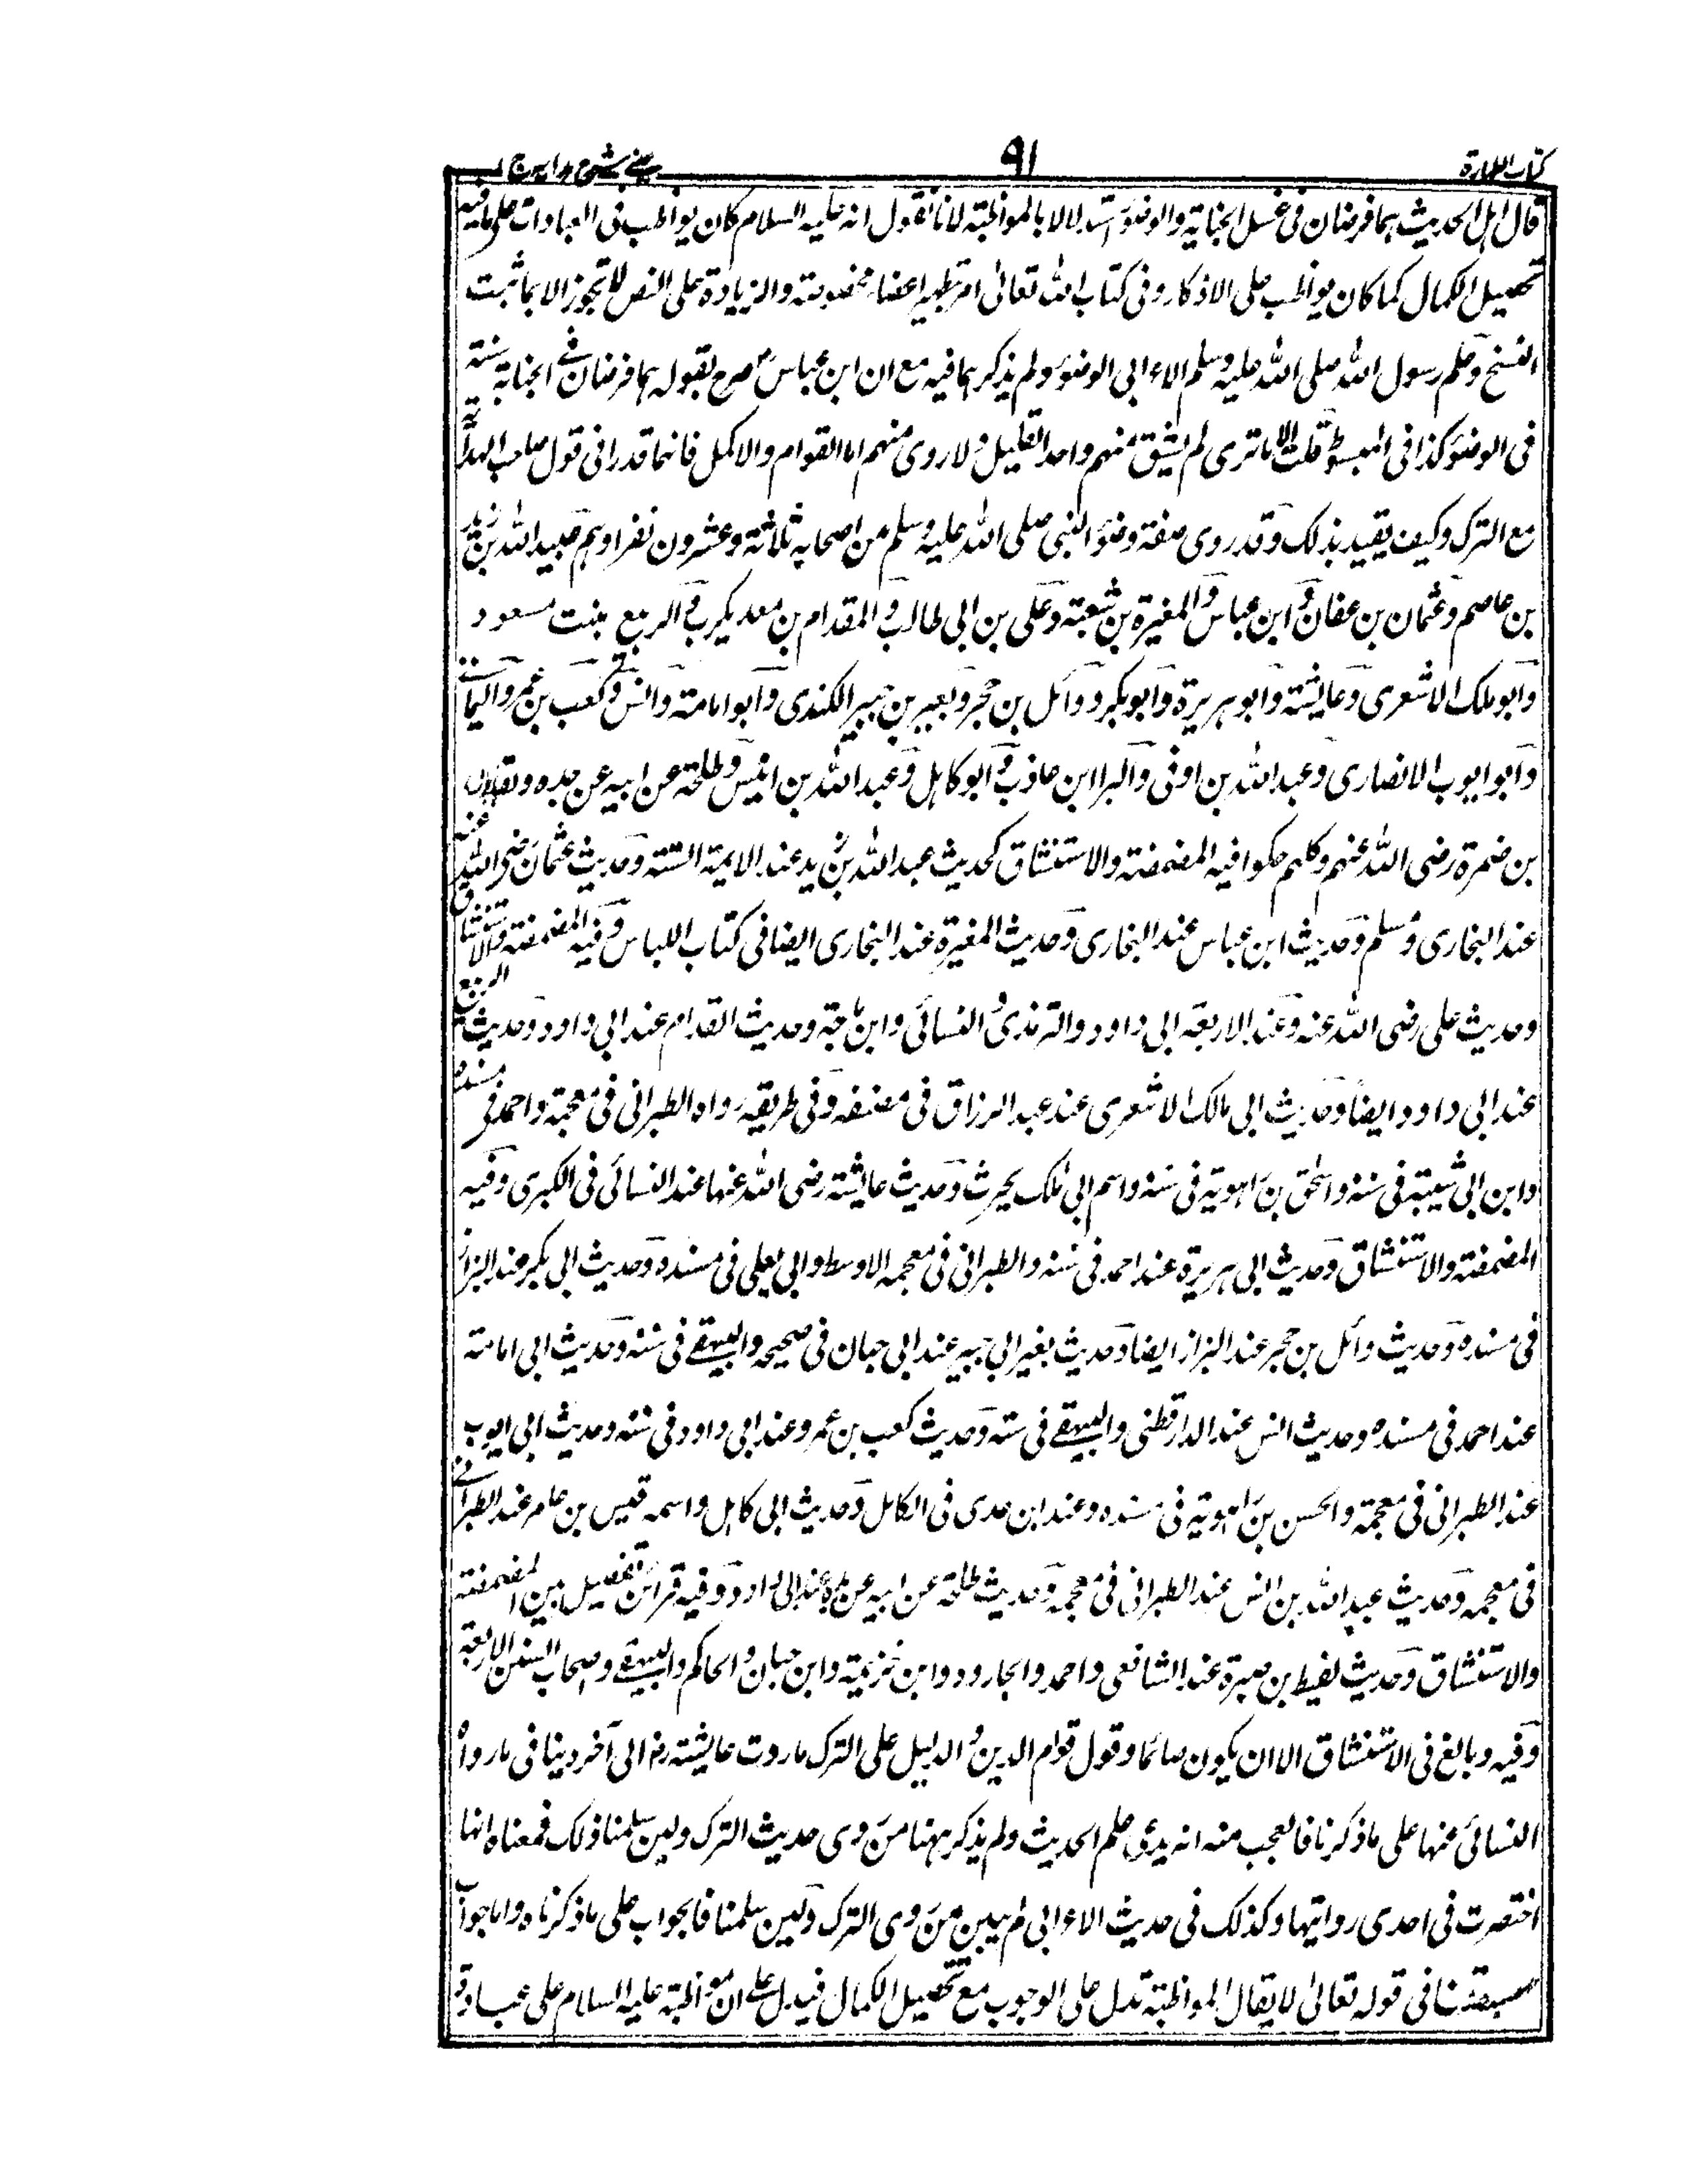 كتاب الطهارة
٩١
عيني شرح هدايه ج ١
قال اهل الحديث هما فرضان فى غسل الجنابة والوضوء استدلالا بالمواظبة لانا نقول انه عليه السلام كان يواظب فى العبادات على ما فيه
تحصيل الكمال كما كان يواظب على الاذكار وفى كتاب الله تعالى امر تطهير اعضاء مخصوصة والزيادة على النص لا تجوز الا بما ثبت
النسخ وعلم رسول الله صلى الله عليه وسلم الاعرابى الوضوء ولم يذكرهما فيه مع ان ابن عباس صرح بقوله هما فرضان فى الجنابة سنة
فى الوضوء كذا فى المبسوط قلت الا ترى لم يشق منهم واحد القليل ولا روى منهم اما القوام والاكمل فانهما قدرا فى قول صاحب الهداية
مع الترك وكيف يقيد بذلك وقد روى صفة وضوء النبى صلى الله عليه وسلم من اصحابه ثلاثة وعشرون نفرا وهم عبيد الله بن زيد
بن عاصم وعثمان بن عفان وابن عباس والمغيرة بن شعبة وعلى بن ابى طالب والمقدام بن معديكرب والربيع بنت مسعود
وابو ملك الاشعرى وعايشة وابو هريرة وابو بكر ووائل بن حجر وبعير بن جبير الكندى وابو امامة وانس وكعب بن عمر واليمانى
وابو ايوب الانصارى وعبد الله بن اوفى والبرا ابن عاذب وابو كاهل وعبد الله بن انيس وطلحة عن ابيه عن جده ولقيط
بن ضمرة رضى الله عنهم وكلهم حكوا فيه المضمضة والاستنشاق كحديث عبد الله بن زيد عند الايمة الستة وحديث عثمان رضى الله عنه
عند البخارى ومسلم وحديث ابن عباس عند البخارى وحديث المغيرة عند البخارى ايضا فى كتاب اللباس وفيه المضمضة والاستنشاق
وحديث على رضى الله عنه وعند الاربعة ابى داود والترمذى والنسائى وابن ماجة وحديث القدام عند ابى داود وحديث الربيع
عند ابى داود ايضا وحديث ابى مالك الاشعرى عند عبد الرزاق فى مصنفه وفى طريقه رواه الطبرانى فى معجمة واحمد فى مسنده
وابن ابى شيبة فى سننه واسحق بن راهوية فى سننه واسم ابى ملك يحيرث وحديث عايشة رضى الله عنها عند النسائى فى الكبرى وفيه
المضمضة والاستنشاق وحديث ابى هريرة عند احمد فى سننه والطبرانى فى معجمه الاوسط وابى يعلى فى مسنده وحديث ابى بكر عند البزار
فى مسنده وحديث وائل بن حجر عند البزاز ايضا وحديث بغير ابى جبير عند ابى حبان فى صحيحه والبيهقے فى سننه وحديث ابى امامة
عند احمد فى مسنده وحديث انس عند الدارقطنى والبيهقے فى سننه وحديث كعب بن عمر وعند ابى داود فى سننه وحديث ابى ايوب
عند الطبرانى فى معجمة والحسن بن راهوية فى مسنده وعند ابن عدى فى الكامل وحديث ابى كاهل واسمه قيس بن عامر عند الطبرانى
فى معجمه وحديث عبد الله بن انس عند الطبرانى فى معجمه وحديث طلحة عن ابيه عن جده عند ابى داود وفيه قرائن تفصيل بين المضمضة
والاستنشاق وحديث لقيط بن صبرة عند الشافعى واحمد والجارود وابن خزيمة وابن حبان والحاكم والبيهقے واصحاب السنن الاربعة
وفيه وبالغ فى الاستنشاق الا ان يكون صائما وقول قوام الدين والدليل على الترك ما روت عايشة رض الى آخره ينافى ما رواه
النسائى عنها على ما ذكرنا فالعجب منه انه يدعى علم الحديث ولم يذكر ههنا من روى حديث الترك ولين سلمنا ذلك فمعناه انها
اختصرت فى احدى روايتها وكذلك فى حديث الاعرابى لم يبين من روى الترك ولين سلمنا فالجواب على ما ذكرناه واما جواب
فى قوله تعالى لا يقال المواظبة تدل على الوجوب مع تحصيل الكمال فيدل على ان مواظبة عليه السلام على عبادة